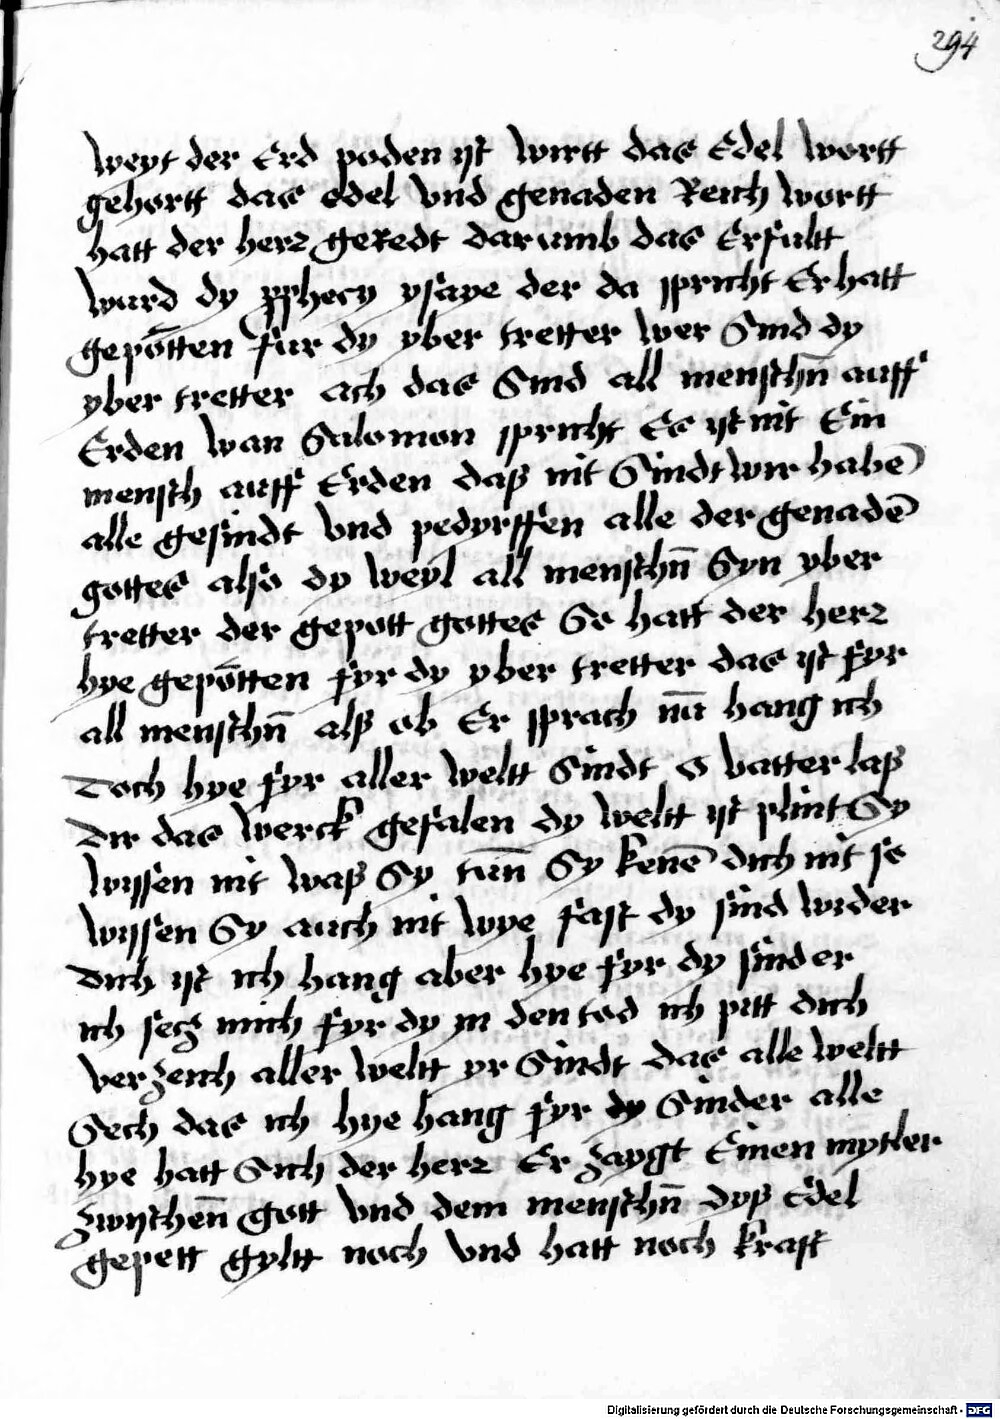 294
weyt der Erd poden ist wirtt das Edel wortt
gehortt das edel vnd genaden Reich wortt
hatt der herr geRedt darumb das Erfultt
ward dy pphecy ysaye der da spricht Er hatt
gepötten für dy yber tretter wer Sind dy
yber tretter ach das Sind all menschn̄ auff
Erden wan Salomon spricht Es ist nit Ein
mensch auff Erden daß nit Sindt wir habē
alle gesindt vnd pedyrffen alle der genadē
gottes also dy weyl all menschn̄ Syn yber
tretter der gepott gottes So hatt der herr
hye gepötten fyr dy yber tretter das ist fyr
all menschn̄ alß ob Er sprach nū hang ich
doch hye fyr aller weltt Sindt o vatter laß
dir das werck gefalen dy weltt ist plint Sy
wissen nit waß Sy tūn Sy kenē dich nit so
wissen Sy auch nit wye fast dy sind wider
dich ist ich hang aber hye fyr dy sinder
ich secz mich fyr dy in den tod ich pitt dich
verzeich aller weltt yr Sindt das alle weltt
Sech das ich hye hang fyr dy Sinder alle
hye hatt Sich der herr Erzaygt Einen mytler
zwischen̄ gott vnd dem menschn̄ dyß Edel
gepett gyltt noch vnd hatt noch krafft
Digitalisierung gefördert durch die Deutsche Forschungsgemeinschaft - DFG